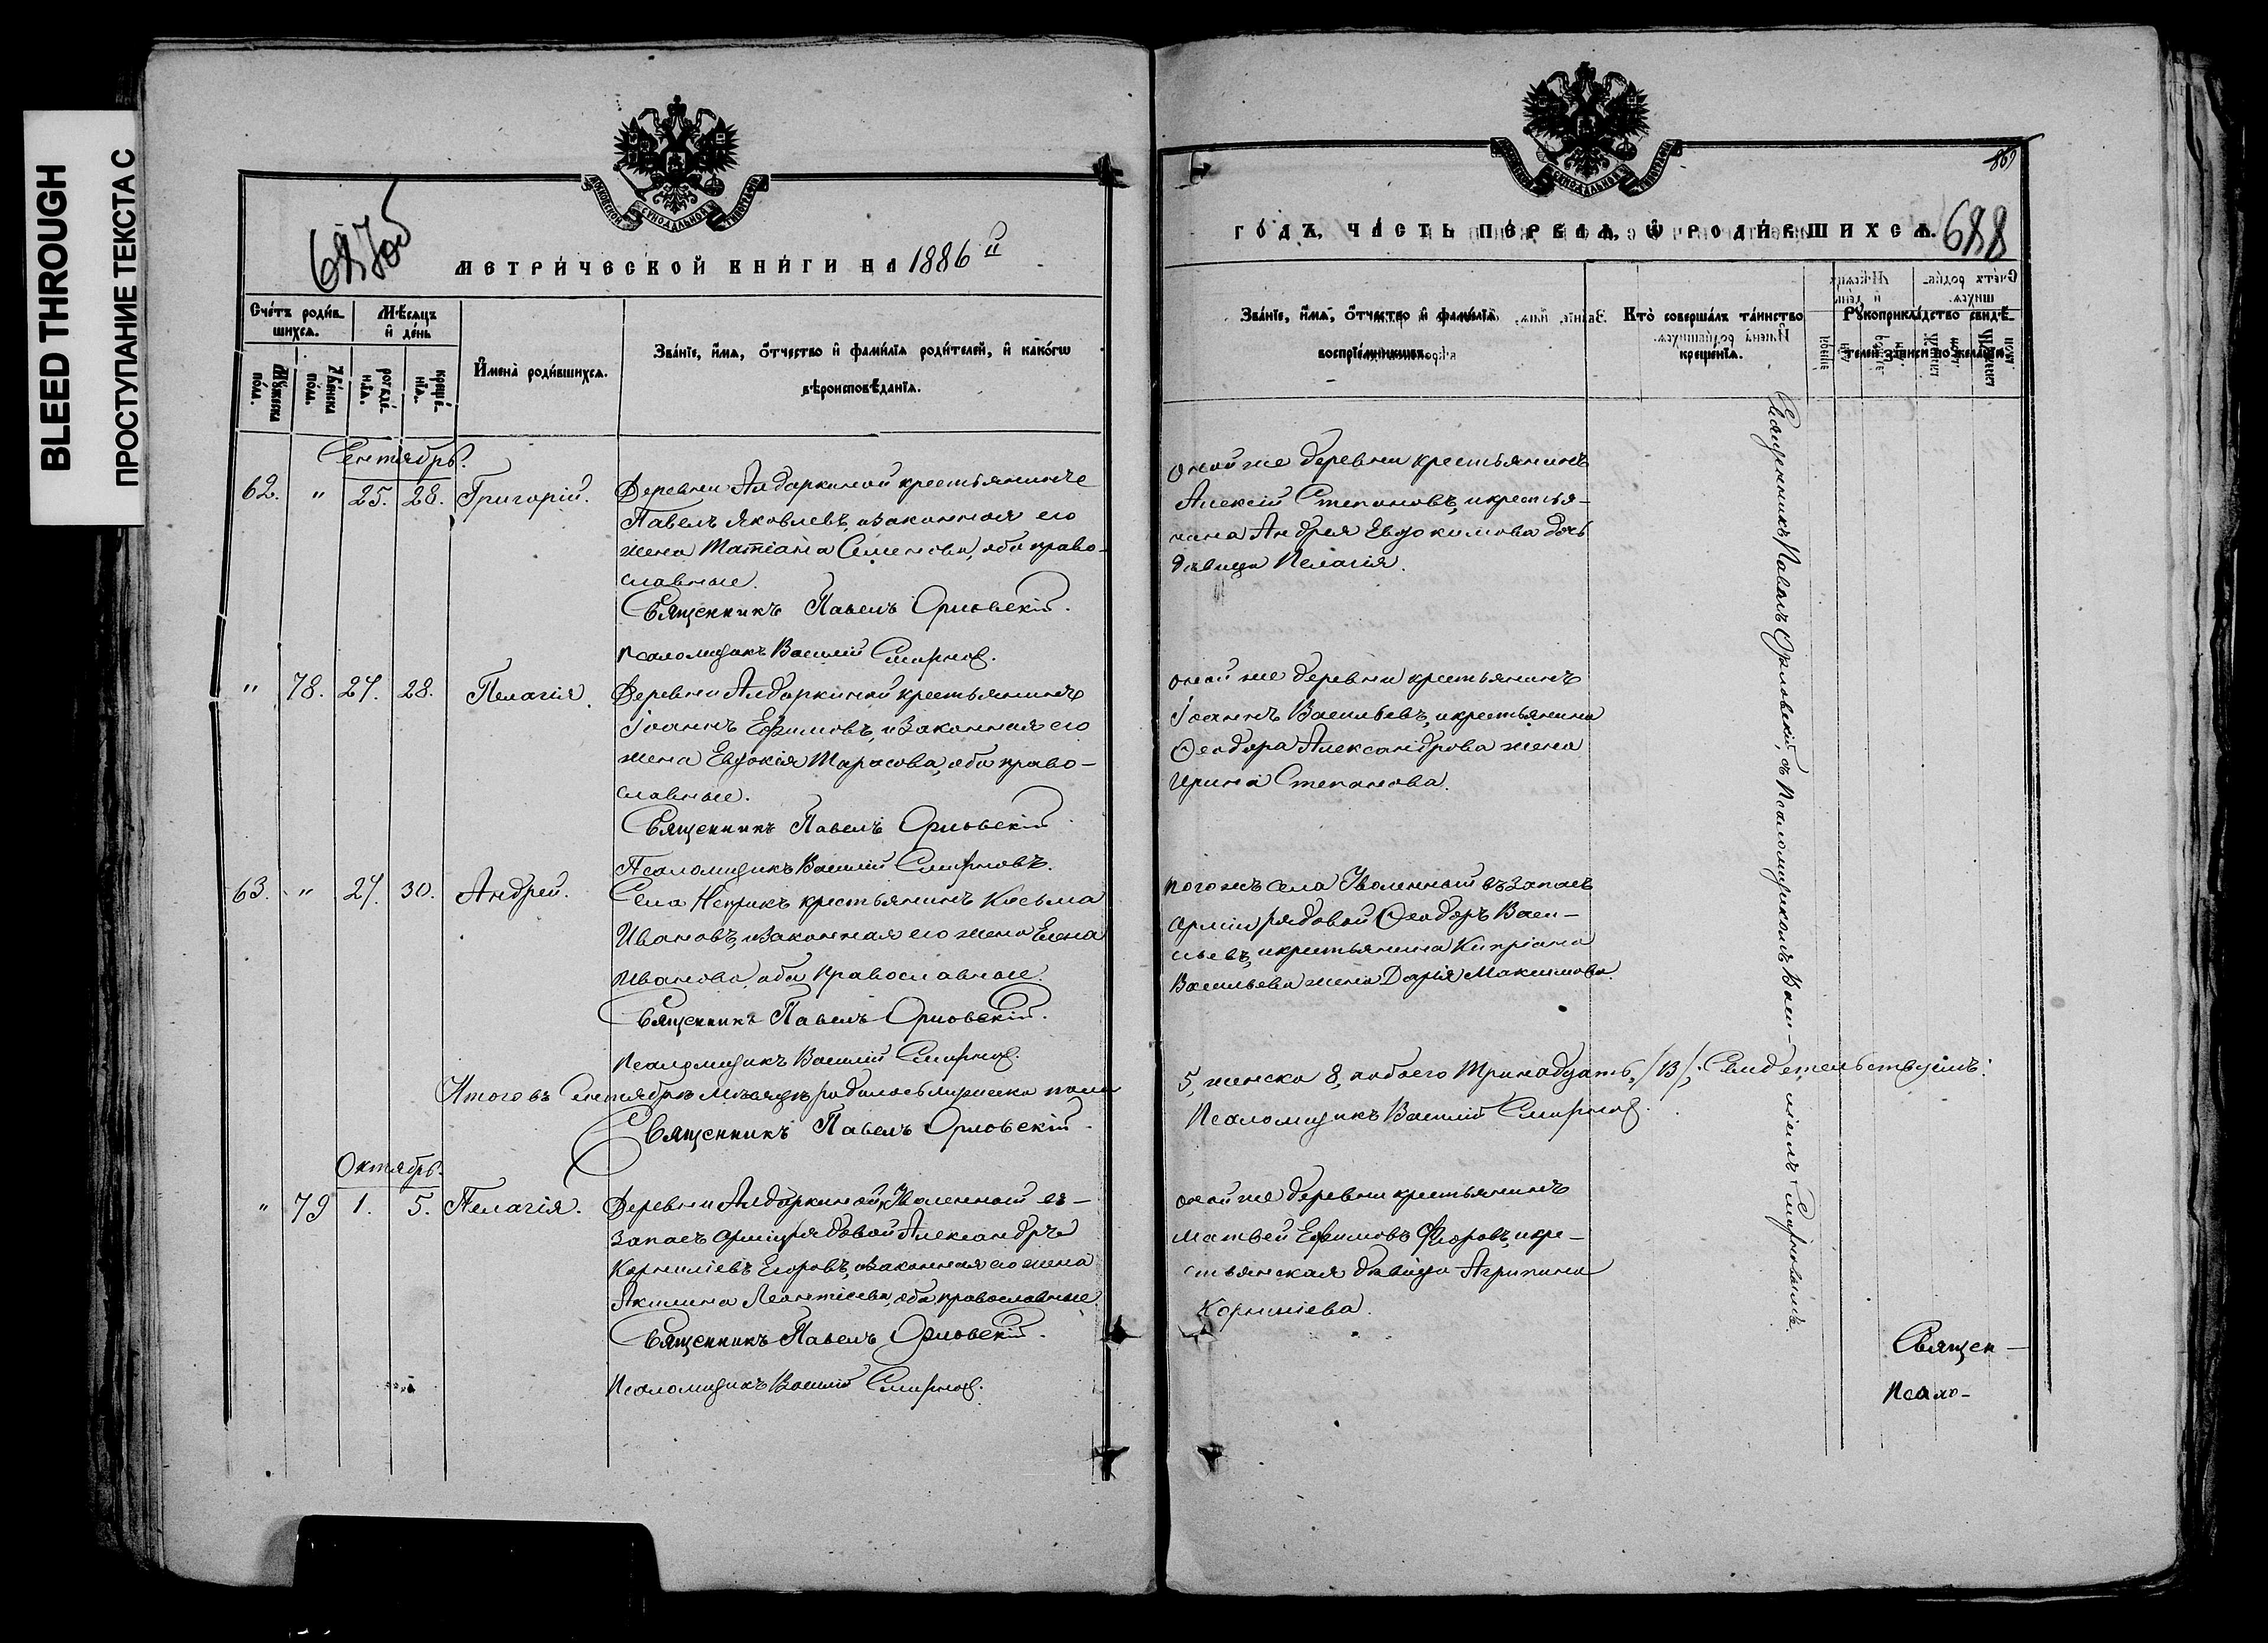 BLEED THROUGH
ПРОСТУПАНИЕ ТЕКСТА С
МОСКОВСКОЙ СѴНОДАЛЬНОЙ ТИПОГРАФІИ
687об
МЕТРИЧЕСКОЙ КНИГИ НА 1886й
Счетъ родив-
шихся.
Мѣсяцъ
и день
Мужеска пола.
Женска пола.
рожде-
нія.
креще-
нія.
Имена родившихся.
Званіе, имя, отчество и фамилія родителей, и какогѡ
вѣроисповѣданія.
Сентябрь.
62. " 25. 28. Григорій. Деревни Алдаркиной крестьянинъ
Павелъ Яковлевъ, и законная его
жена Татіана Семенова, оба право-
славные.
Священникъ Павелъ Орловскій.
Псаломщикъ Василій Смирновъ.
" 78. 27. 28. Пелагія. Деревни Алдаркиной крестьянинъ
Іоаннъ Ефимовъ, и законная его
жена Евдокія Тарасова, оба право-
славные.
Священникъ Павелъ Орловскій
Псаломщикъ Василій Смирновъ.
63. " 27. 30. Андрей. Села Неприкъ крестьянинъ Косьма
Ивановъ, и законная его жена Елена
Иванова, оба православные.
Священникъ Павелъ Орловскій.
Псаломщикъ Василій Смирновъ.
Итого въ Сентябрѣ мѣсяцѣ родилось мужеска пола
Священникъ Павелъ Орловскій.
Октябрь.
" 79 1. 5. Пелагія. Деревни Алдаркиной, Уволенный въ-
запасъ арміи рядовой Александръ
Корниліевъ Егоровъ, и законная его жена
Акилина Леонтіева, оба православные.
Священникъ Павелъ Орловскій.
Псаломщикъ Василій Смирновъ.
МОСКОВСКОЙ СѴНОДАЛЬНОЙ ТИПОГРАФІИ
ГОДЪ, ЧАСТЬ ПЕРВАЯ, Ѡ РОДИВШИХСЯ. 688
Званіе, имя, отчество и фамилія
воспріемниковъ.
Кто совершалъ таинство
крещенія.
Рукоприкладство свидѣ-
телей записи по желанію
оной же деревни крестьянинъ
Алексій Степановъ, и крестья-
нина Андрея Евдокимова дочь
дѣвица Пелагія.
оной же деревни крестьянинъ
Іоаннъ Васильевъ, и крестьянина
Ѳеодора Александрова жена
Ирина Степанова.
того жъ села Уволенный въ запасъ
арміи рядовой Ѳеодоръ Васи-
льевъ, и крестьянина Кипріана
Васильева жена Дарія Максимова.
5, женска 8, а обоего тринадцать, /13/. Свидетельствуемъ:
Псаломщикъ Василій Смирновъ.
оной же деревни крестьянинъ
Матвей Ефимовъ Егоровъ, и кре-
стьянская дѣвица Агрипина
Корниліева.
Священникъ Павелъ Орловскій, съ Псаломщикомъ Васи-
ліемъ Смирновымъ.
Священ-
Псало-